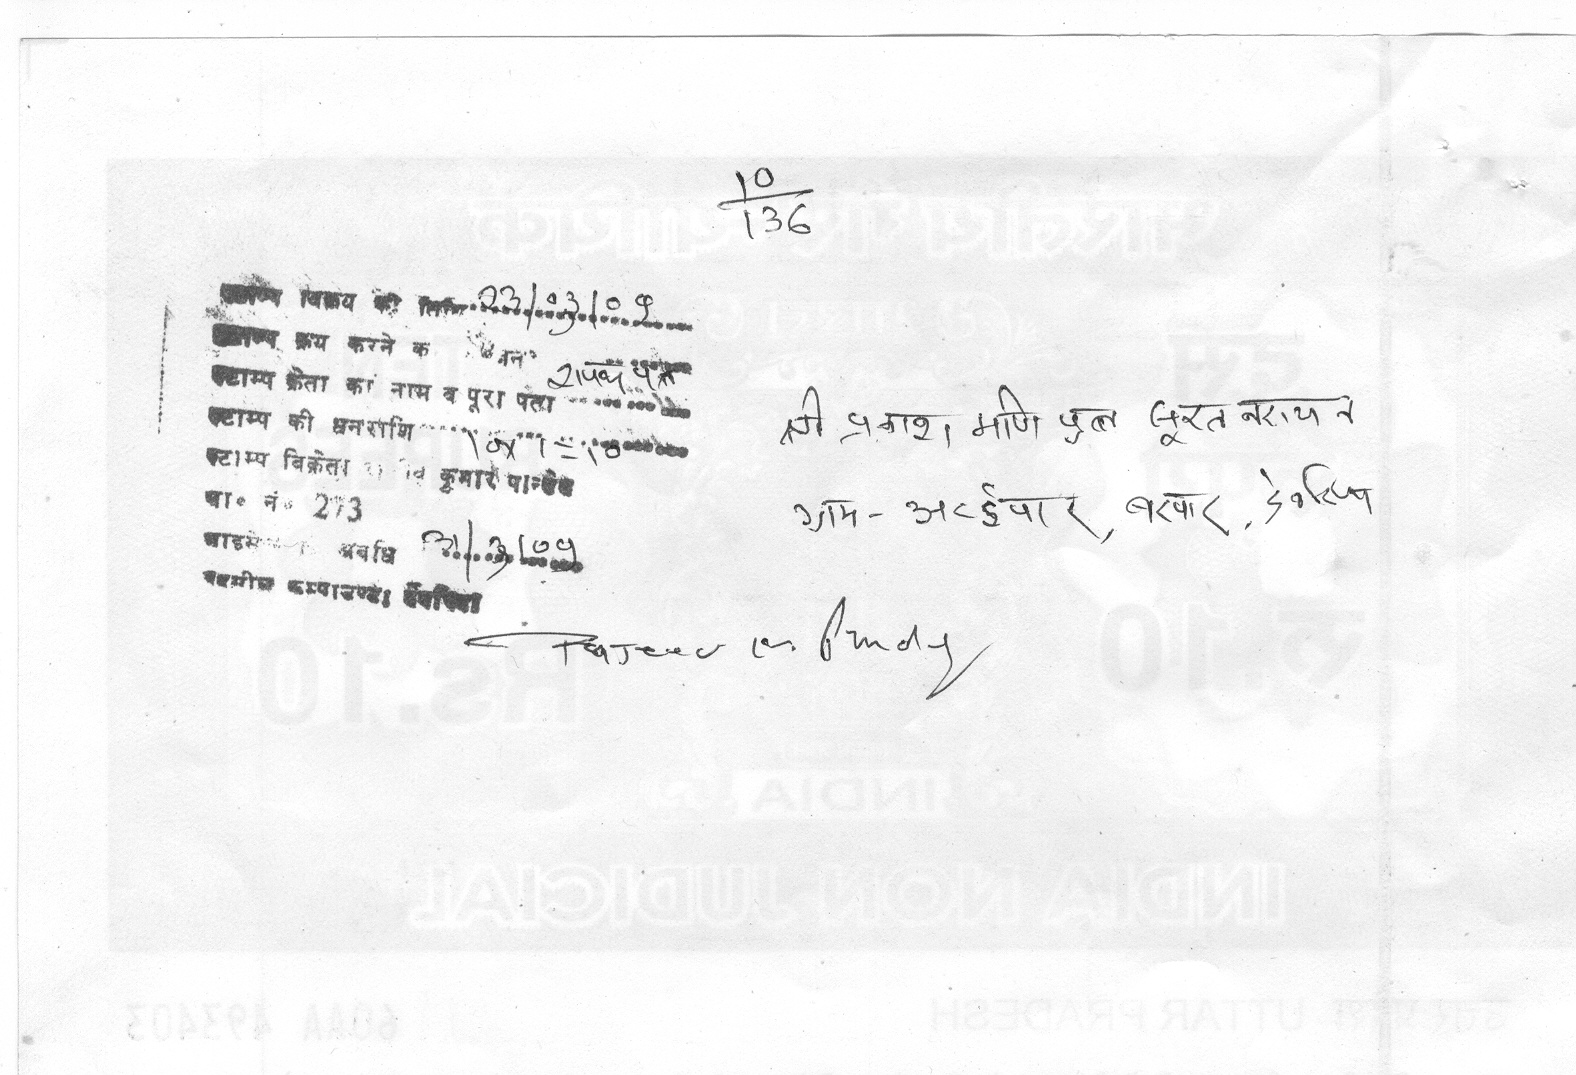 10
136
स्टाम्प विक्रय की तिथि 23/03/09
स्टाम्प क्रय करने का शपथ पत्र
स्टाम्प क्रेता का नाम व पूरा पता
स्टाम्प की धनराशि 10x1=10
स्टाम्प विक्रेता कुमार पान्डेय
ला० नं० 273
अवधि 31/3/09
कम्पाउण्ड, देवरिया
श्री प्रकाश मणि पुत्र सूरत नरायन
ग्राम- बरपार, देवरिया
Rajeev Kr. Pandey
भारतीय गैर न्यायिक
दस
TEN
RUPEES
रु.10
Rs.10
INDIA
INDIA NON JUDICIAL
उत्तर प्रदेश UTTAR PRADESH
60AA 493403